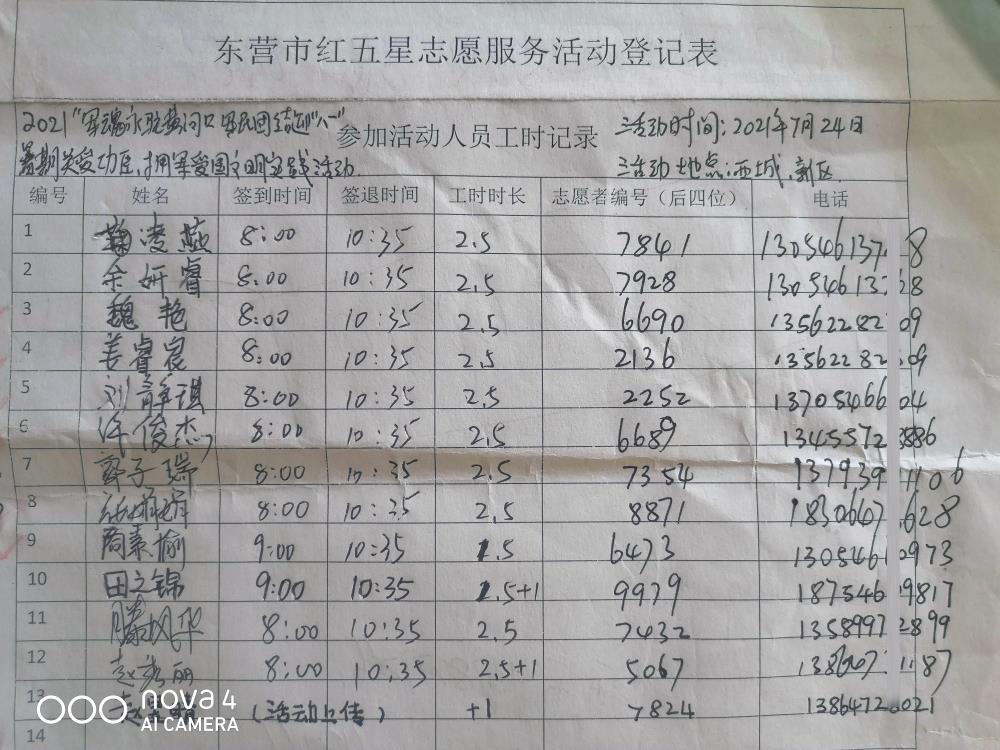 东营市红五星志愿服务活动登记表
2021"军魂永驻 军民团结迎"八一" 参加活动人员工时记录 活动时间:2021年7月24日
暑期关爱功臣,拥军爱国文明实践活动 活动地点:西城、新区
编号 姓名 签到时间 签退时间 工时时长 志愿者编号(后四位) 电话
1 凌燕 8:00 10:35 2.5 7841 130546137 8
2 余妍睿 8:00 10:35 2.5 7928 13054613 28
3 魏艳 8:00 10:35 2.5 6690 13562282 09
4 姜睿宸 8:00 10:35 2.5 2136 13562282 09
5 刘静琪 8:00 10:35 2.5 2252 137054066 04
6 许俊杰 8:00 10:35 2.5 6689 1345572 886
7 郭子瑞 8:00 10:35 2.5 7354 137939 1106
8 8:00 10:35 2.5 8871 1830667 628
9 周素愉 9:00 10:35 1.5 6473 1305461 2973
10 田之锦 9:00 10:35 1.5+1 9979 187546 9817
11 滕 华 8:00 10:35 2.5 7432 1358997 2899
12 赵秀丽 8:00 10:35 2.5+1 5067 1187
13 (活动上传) +1 7824 1386472 021
14
nova 4
AI CAMERA